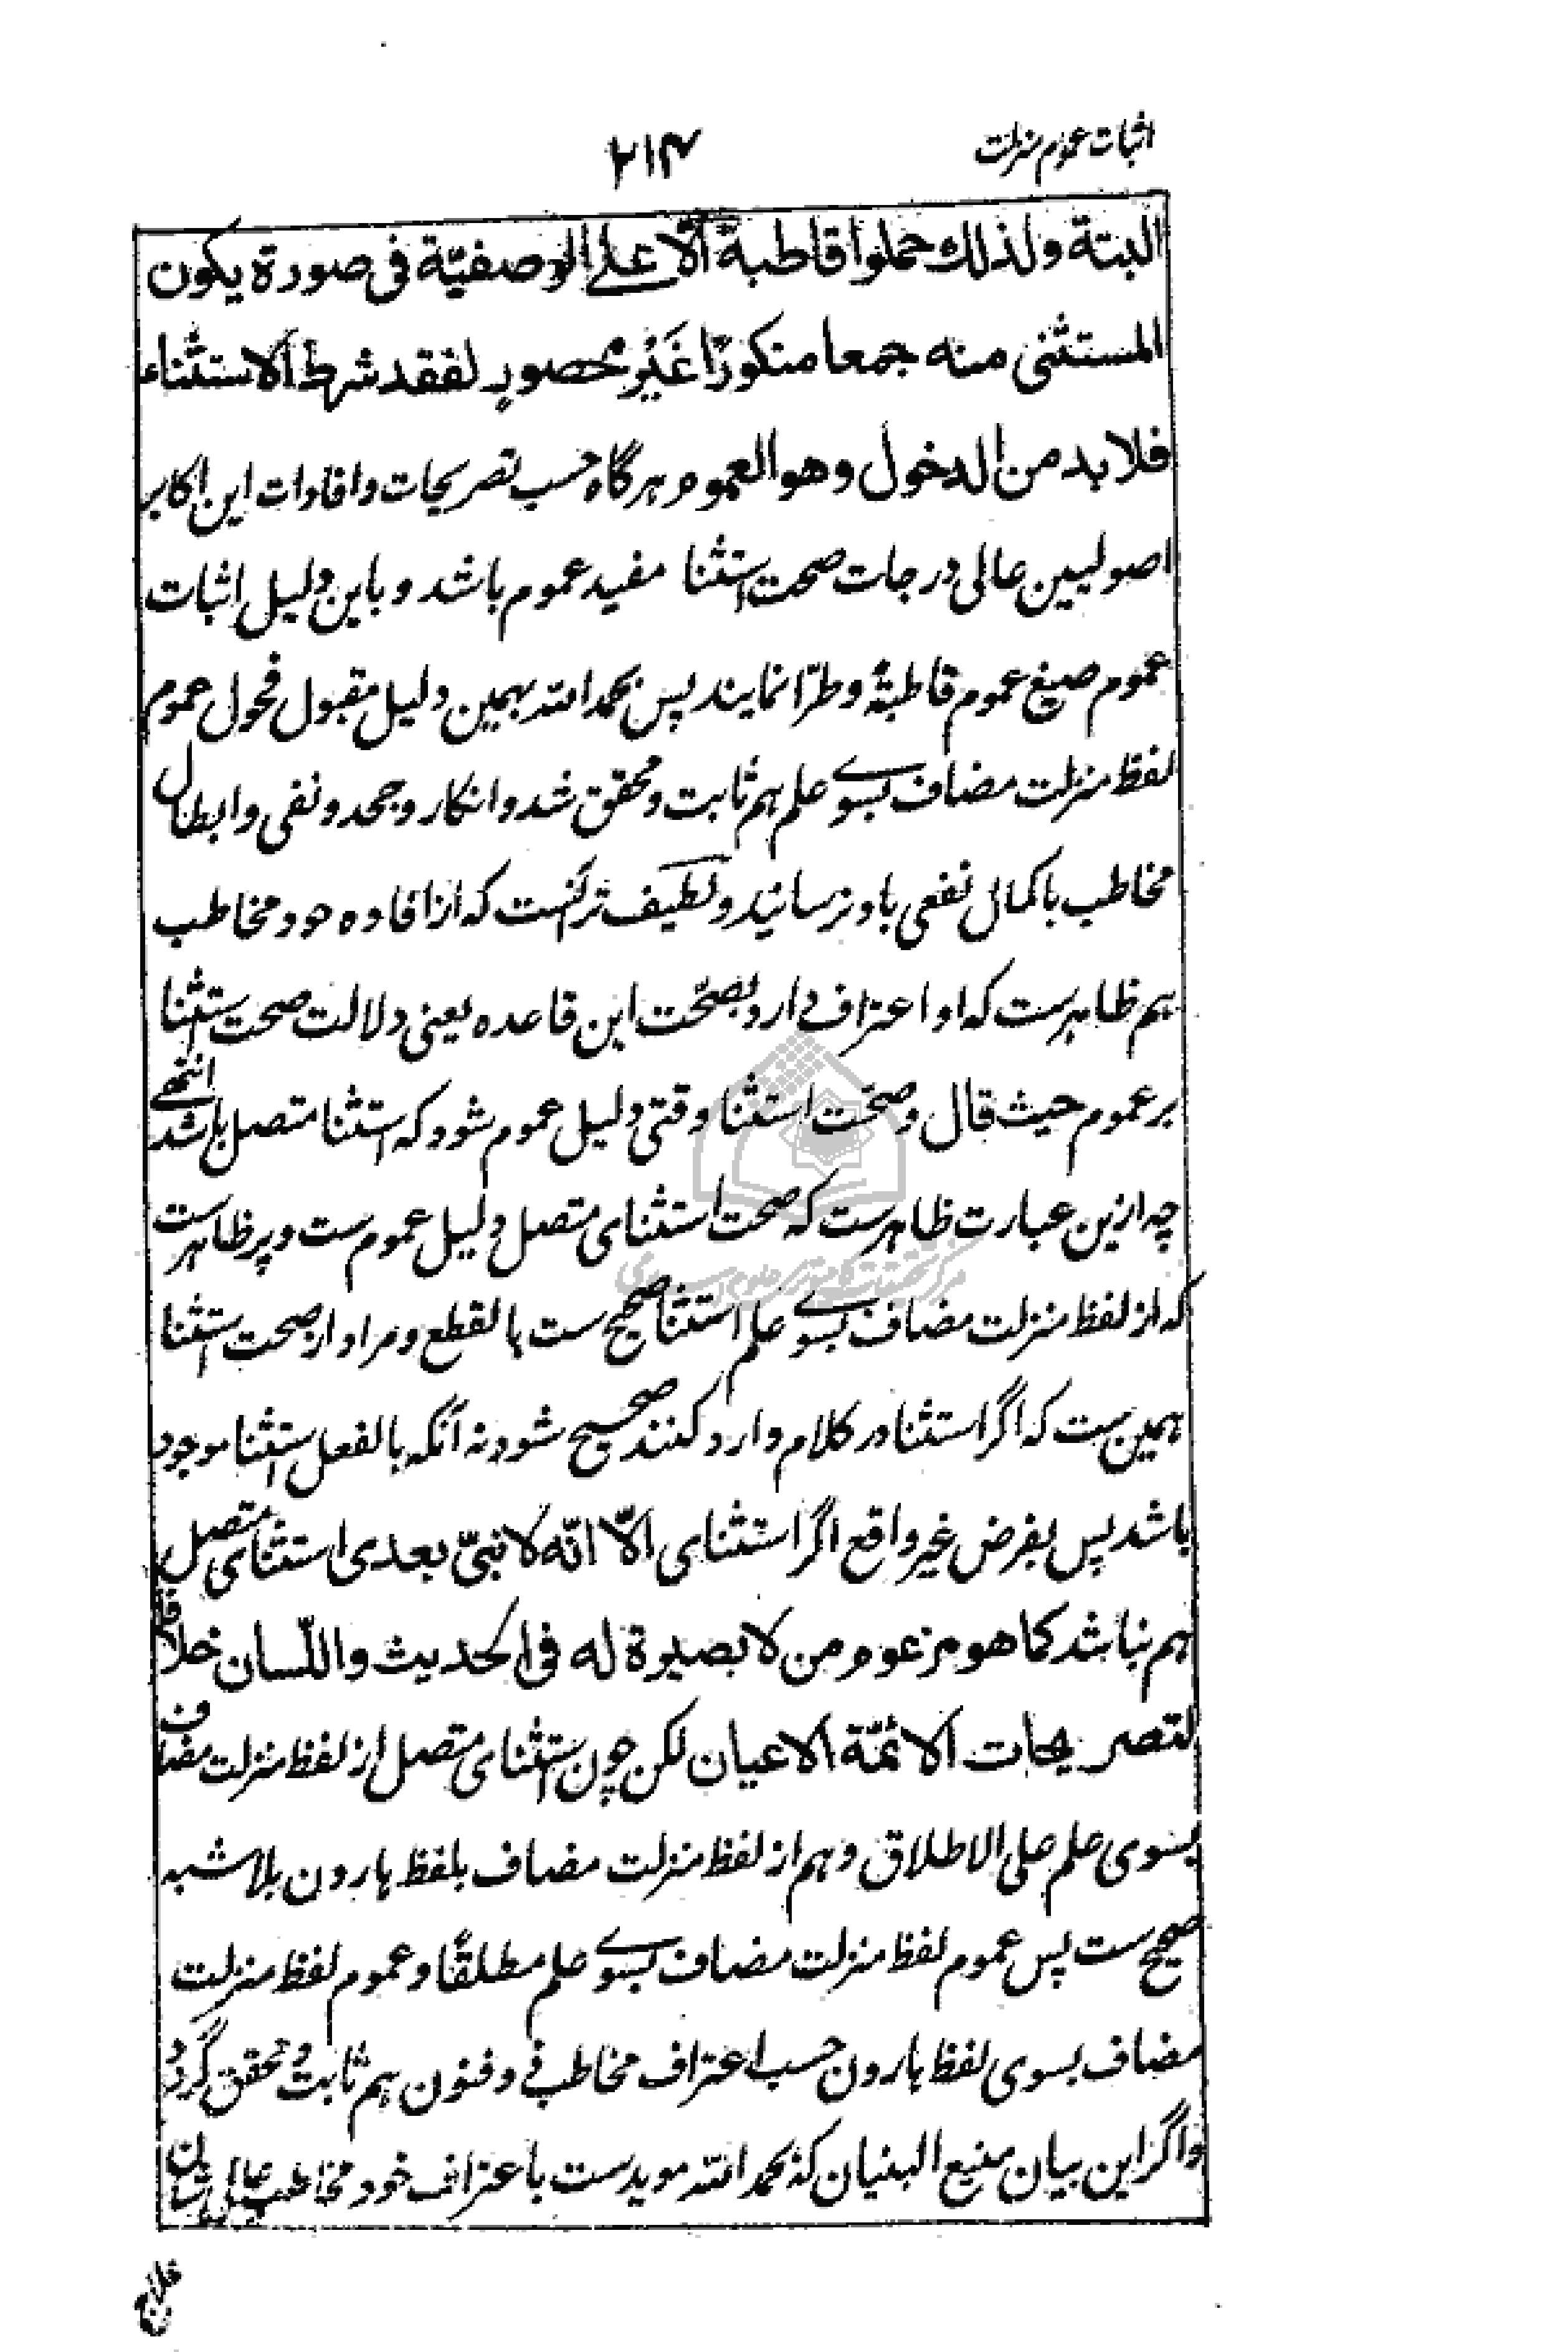 اثبات عموم منزلت
۲۱۴
البتة ولذلك حملوا قاطبة الّا على الوصفيّة فى صورة يكون
المستثنى منه جمعا منكورًا غَيْر محصورٍ لفقد شرط الاستثناء
فلا بد من الدخول وهو العموم هرگاه حسب تصریحات وافادات این اکابر
اصولیین عالی درجات صحت استثنا مفید عموم باشد و باین دلیل اثبات
عموم صیغ عموم قاطبةً وطرّا نمایند پس بحمد الله بهمین دلیل مقبول فحول عموم
لفظ منزلت مضاف بسوے علم هم ثابت ومحقق شد وانکار و جحد ونفی وابطال
مخاطب باکمال نفعی باو نرسانید ولطیف تر آنست که از افاده خود مخاطب
هم ظاهرست که او اعتراف دارد بصحّت این قاعده یعنی دلالت صحت استثنا
بر عموم حیث قال وصحّت استثنا وقتی دلیل عموم شود که استثنا متصل باشد انتهے
چه ازین عبارت ظاهرست که صحت استثنای متصل دلیل عموم ست و پر ظاهرست
که از لفظ منزلت مضاف بسوے علم استثنا صحیح ست بالقطع و مراد از صحت استثنا
همین ست که اگر استثنا در کلام وارد کنند صحیح شود نه آنکه بالفعل استثنا موجود
باشد پس بفرض غیر واقع اگر استثنای الّا انّه لا نبیّ بعدی استثنای متصل
هم نباشد کما هو مزعوم من لا بصیرة له فی الحدیث واللّسان خلافا
لتصریحات الائمّة الاعیان لکن چون استثنای متصل از لفظ منزلت مضاف
بسوی علم علی الاطلاق و هم از لفظ منزلت مضاف بلفظ هارون بلا شبه
صحیح ست پس عموم لفظ منزلت مضاف بسوے علم مطلقًا و عموم لفظ منزلت
مضاف بسوی لفظ هارون حسب اعتراف مخاطب ذی فنون هم ثابت و محقق گردد
واگر این بیان منیع البنیان که بحمد الله مویدست باعتراف خود مخاطب عالیشان